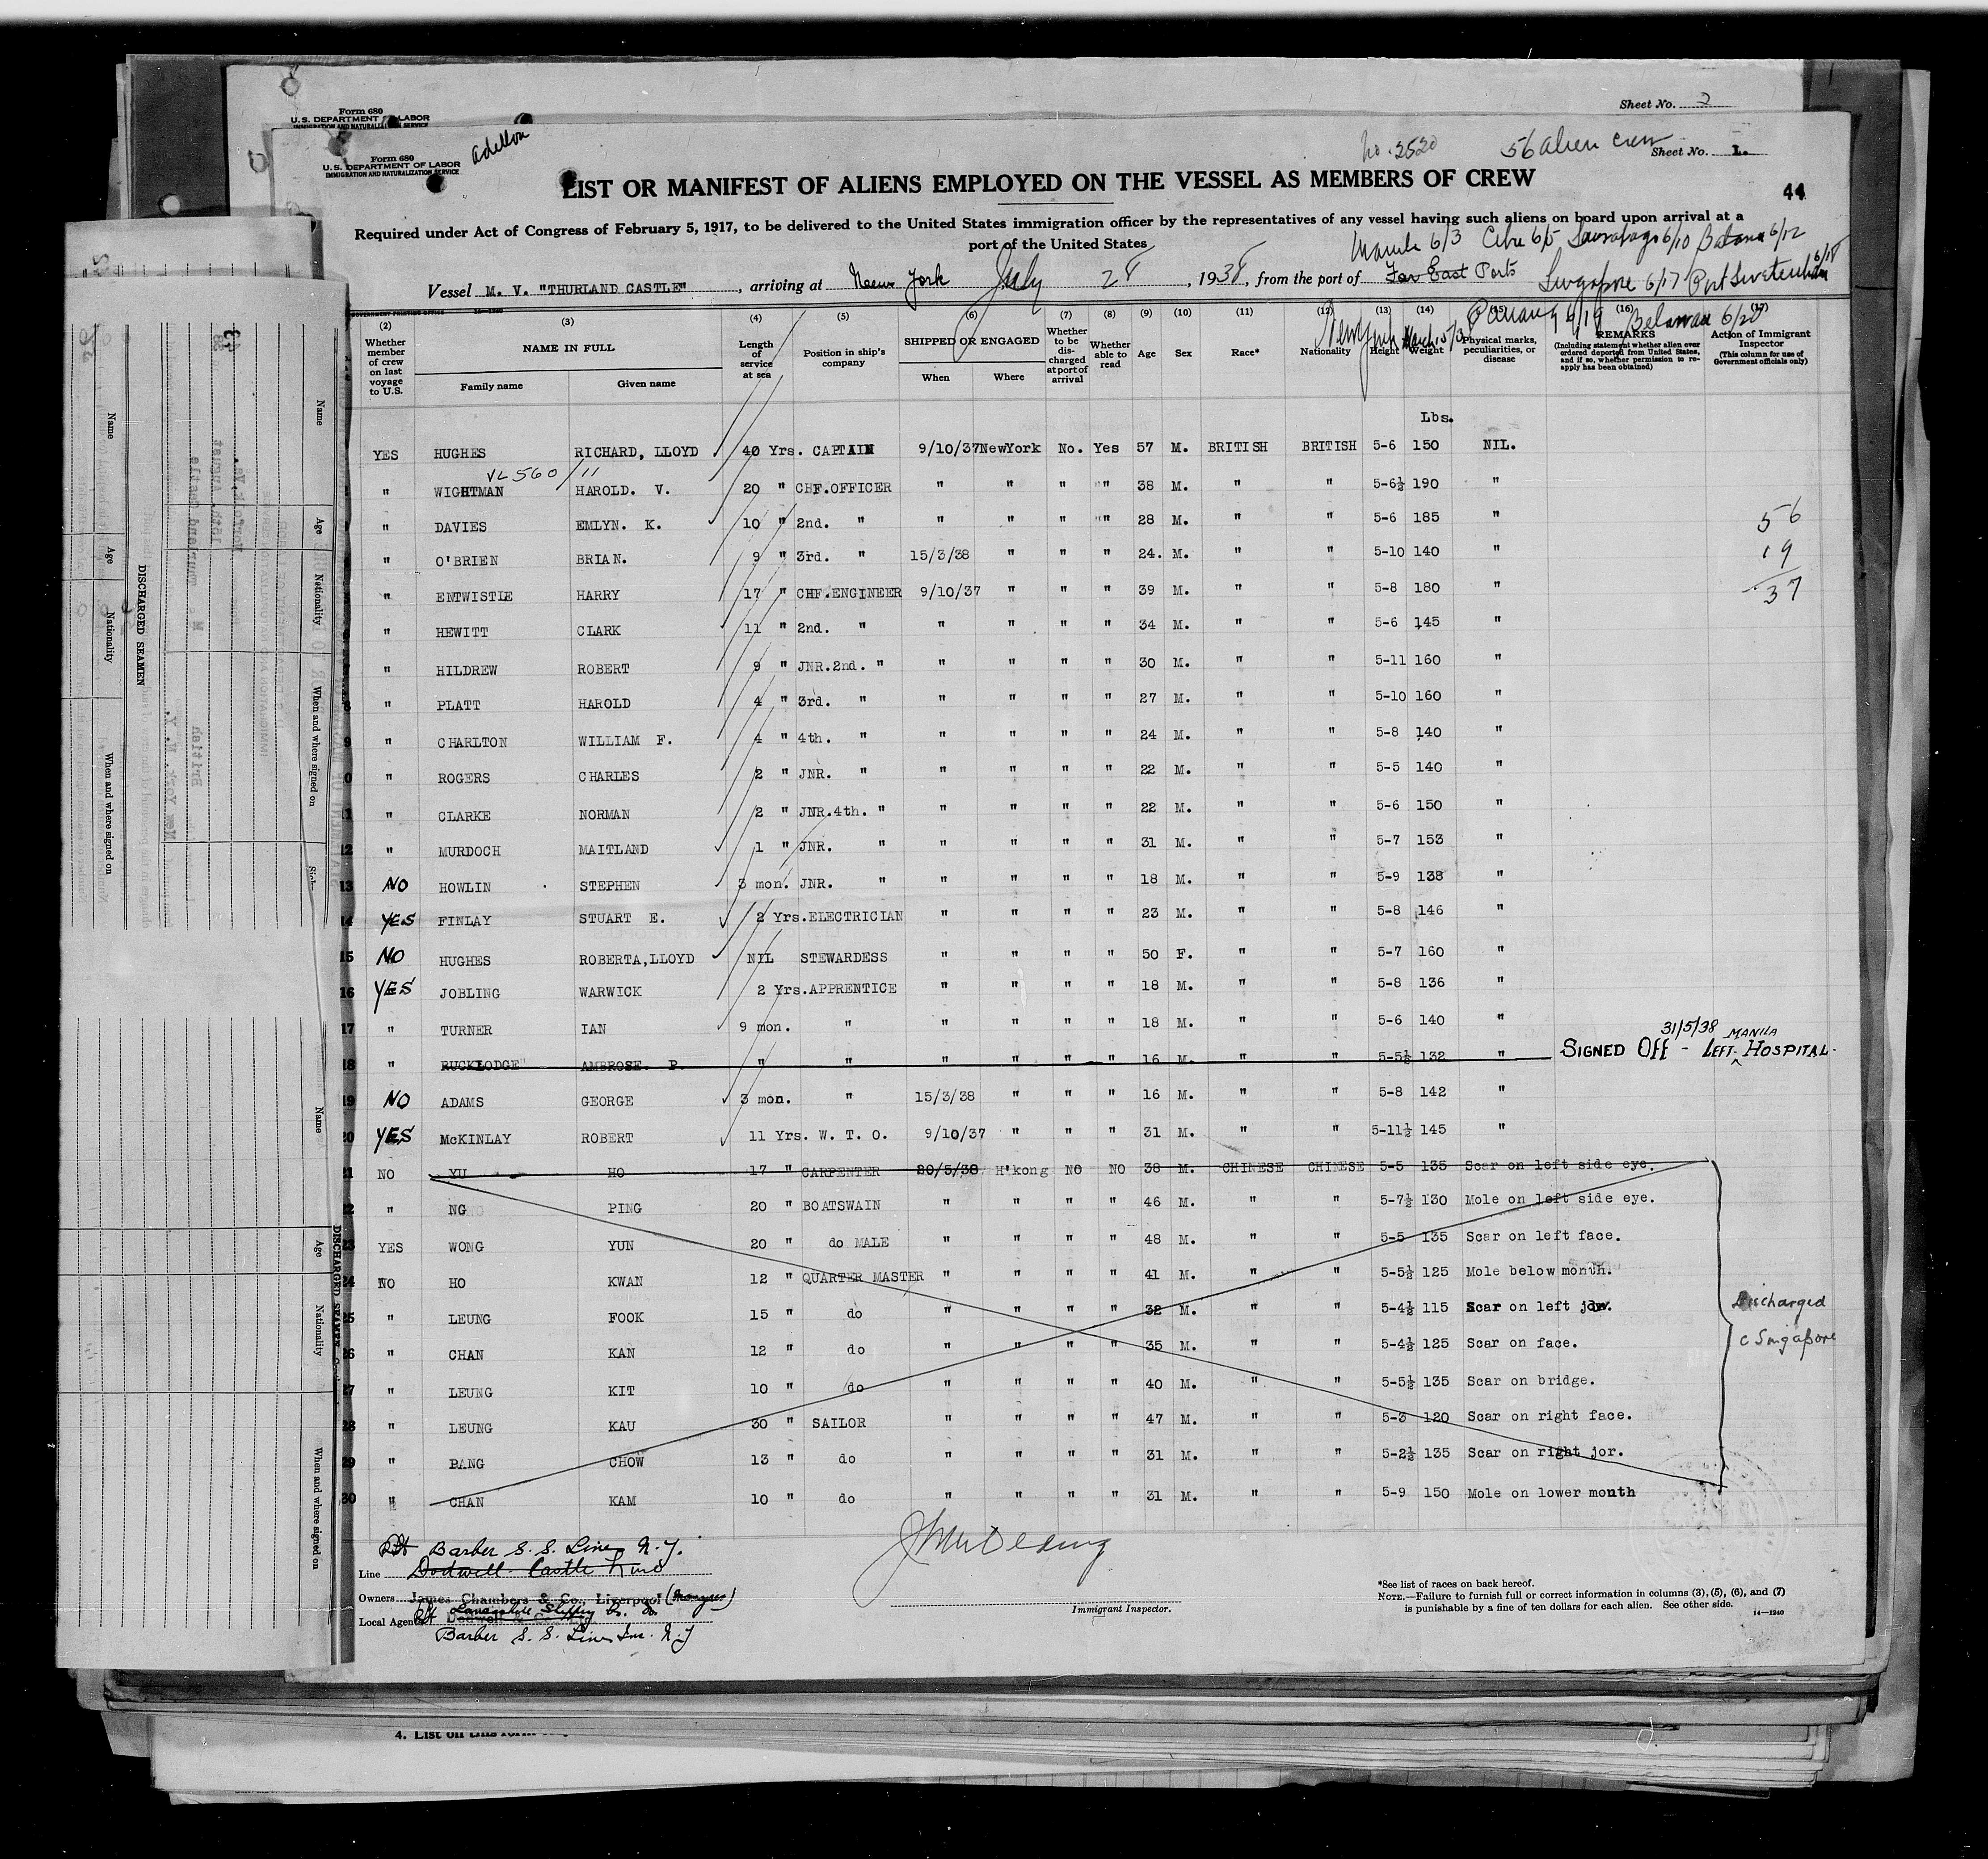 Form 680
U.S. DEPARTMENT OF LABOR
Sheet No. 2
Form 680
U.S. DEPARTMENT OF LABOR
IMMIGRATION AND NATURALIZATION SERVICE
No. 2520
56 alien crew
Sheet No. 1.
LIST OR MANIFEST OF ALIENS EMPLOYED ON THE VESSEL AS MEMBERS OF CREW
44
Required under Act of Congress of February 5, 1917, to be delivered to the United States immigration officer by the representatives of any vessel having such aliens on board upon arrival at a
port of the United States
Manila 6/3 Cebu 6/5 6/10 6/12
Vessel M. V. "THURLAND CASTLE", arriving at New York July 28, 1938, from the port of Far East Ports
Singapore 6/17 Port Swettenham 6/18
Panang 6/19 Belawan 6/20
(2) Whether member of crew on last voyage to U.S.
(3) NAME IN FULL Family name Given name
(4) Length of service at sea
(5) Position in ship's company
(6) SHIPPED OR ENGAGED When Where
(7) Whether to be discharged at port of arrival
(8) Whether able to read
(9) Age
(10) Sex
(11) Race*
(12) Nationality
(13) Height
(14) Weight
(15) Physical marks, peculiarities, or disease
(16) REMARKS (Including statement whether alien ever ordered deported from United States, and if so, whether permission to reapply has been obtained)
(17) Action of Immigrant Inspector (This column for use of Government officials only)
Lbs.
YES HUGHES RICHARD, LLOYD 40 Yrs. CAPTAIN 9/10/37 NewYork No. Yes 57 M. BRITISH BRITISH 5-6 150 NIL.
VL 560/11
" WIGHTMAN HAROLD. V. 20 " CHF.OFFICER " " " " 38 M. " " 5-6½ 190 "
" DAVIES EMLYN. K. 10 " 2nd. " " " " " 28 M. " " 5-6 185 "
56
" O'BRIEN BRIAN. 9 " 3rd. " 15/3/38 " " " 24. M. " " 5-10 140 "
19
5 " ENTWISTLE HARRY 17 " CHF.ENGINEER 9/10/37 " " " 39 M. " " 5-8 180 "
37
" HEWITT CLARK 11 " 2nd. " " " " " 34 M. " " 5-6 145 "
7 " HILDREW ROBERT 9 " JNR.2nd. " " " " " 30 M. " " 5-11 160 "
8 " PLATT HAROLD 4 " 3rd. " " " " " 27 M. " " 5-10 160 "
9 " CHARLTON WILLIAM F. 4 " 4th. " " " " " 24 M. " " 5-8 140 "
0 " ROGERS CHARLES 2 " JNR. " " " " " 22 M. " " 5-5 140 "
11 " CLARKE NORMAN 2 " JNR.4th. " " " " " 22 M. " " 5-6 150 "
12 " MURDOCH MAITLAND 1 " JNR. " " " " " 31 M. " " 5-7 153 "
13 NO HOWLIN STEPHEN 3 mon. JNR. " " " " " 18 M. " " 5-9 138 "
14 YES FINLAY STUART E. 2 Yrs. ELECTRICIAN " " " " 23 M. " " 5-8 146 "
15 NO HUGHES ROBERTA, LLOYD NIL STEWARDESS " " " " 50 F. " " 5-7 160 "
16 YES JOBLING WARWICK 2 Yrs. APPRENTICE " " " " 18 M. " " 5-8 136 "
17 " TURNER IAN 9 mon. " " " " " 18 M. " " 5-6 140 "
18 " RUCKLODGE AMBROSE. P. " " " " " " 16 M. " " 5-5½ 132 " SIGNED OFF - 31/5/38 LEFT MANILA HOSPITAL.
19 NO ADAMS GEORGE 3 mon. " 15/3/38 " " " 16 M. " " 5-8 142 "
20 YES McKINLAY ROBERT 11 Yrs. W. T. O. 9/10/37 " " " 31 M. " " 5-11½ 145 "
21 NO YU HO 17 " CARPENTER 20/5/38 H'kong NO NO 38 M. CHINESE CHINESE 5-5 135 Scar on left side eye.
22 " NG PING 20 " BOATSWAIN " " " " 46 M. " " 5-7½ 130 Mole on left side eye.
23 YES WONG YUN 20 " do MALE " " " " 48 M. " " 5-5 135 Scar on left face.
24 NO HO KWAN 12 " QUARTER MASTER " " " " 41 M. " " 5-5½ 125 Mole below month.
25 " LEUNG FOOK 15 " do " " " " 32 M. " " 5-4½ 115 Scar on left jow. Discharged
26 " CHAN KAN 12 " do " " " " 35 M. " " 5-4½ 125 Scar on face. c Singapore
27 " LEUNG KIT 10 " do " " " " 40 M. " " 5-5½ 135 Scar on bridge.
28 " LEUNG KAU 30 " SAILOR " " " " 47 M. " " 5-3 120 Scar on right face.
29 " PANG CHOW 13 " do " " " " 31 M. " " 5-2½ 135 Scar on right jor.
30 " CHAN KAM 10 " do " " " " 31 M. " " 5-9 150 Mole on lower month
Barber S. S. Line N.Y.
Line Dodwell Castle Line
Owners James Chambers & Co., Liverpool (Managers)
Lancashire Shipping Co. Ld.
Local Agents
Barber S. S. Lines Inc. N.Y
Immigrant Inspector.
*See list of races on back hereof.
NOTE.—Failure to furnish full or correct information in columns (3), (5), (6), and (7)
is punishable by a fine of ten dollars for each alien. See other side.
14—1240
DISCHARGED SEAMEN
Name
Age
Nationality
When and where signed on
Name
Age
Nationality
When and where signed on
DISCHARGED SEAMEN
Name
Age
Nationality
When and where signed on